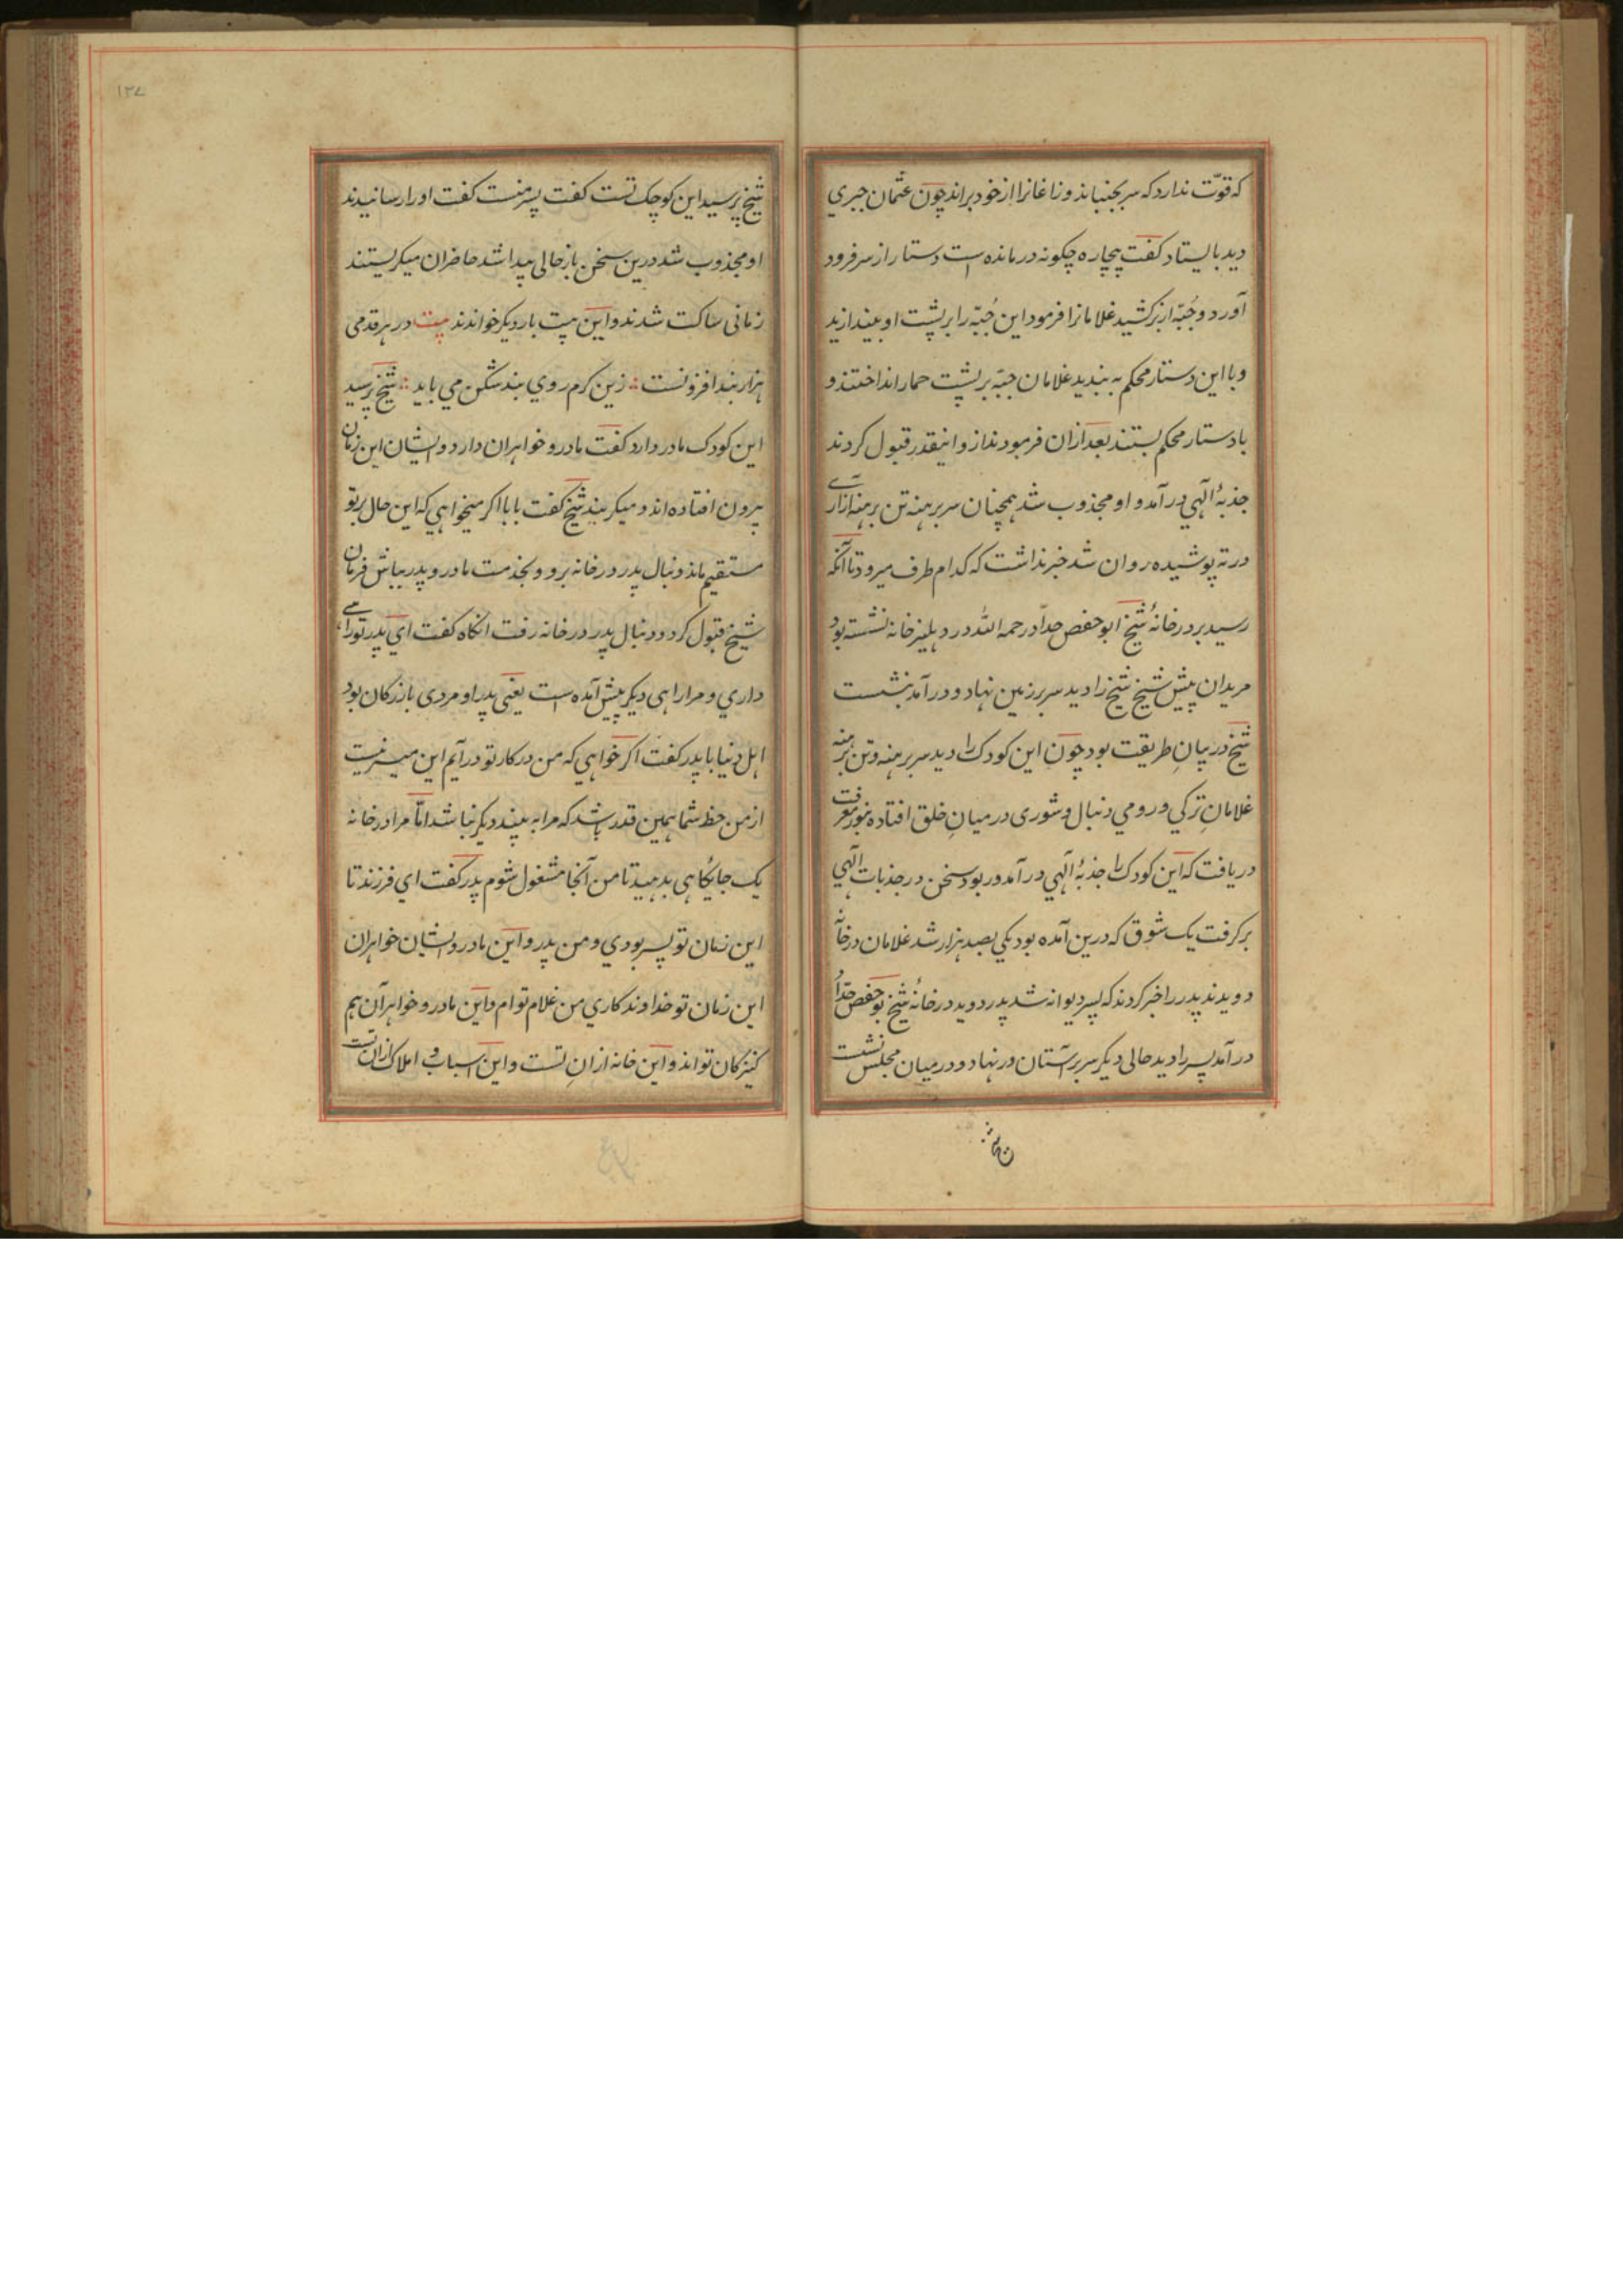 که قوّت ندارد که سر بجنباند و زاغانرا از خود براند چون عثمان جبری
دید بایستاد کفت بیچاره چکونه درمانده است دستار از سر فرود
آورد و جُبّه از بر کشید غلامانرا فرمود این جُبّه را بر پشت او بیندازید
و با این دستار محکم به بندید غلامان جبّه بر پشت حمار انداختند و
با دستار محکم بستند بعد ازان فرمودند ازو اینقدر قبول کردند
جذبهٔ آلهی درآمد و او مجذوب شد همچنان سر برهنه تن برهنه ازاری
در ته پوشیده روان شد خبر نداشت که کدام طرف میرود تا آنکه
رسید بر در خانهٔ شیخ ابو حفص حدّاد رحمه الله در دهلیز خانه نشسته بود
مریدان پیش شیخ شیخ را دید سر بر زمین نهاد و درآمد بنشست
شیخ در بیانِ طریقت بود چون این کودک را دید سر برهنه و تن برهنه
غلامانِ ترکی و رومی دنبال و شوری در میانِ خلق افتاده بنور معرفت
دریافت که این کودک را جذبهٔ آلهی درآمد و ربود سخن در جذبات الهی
برکرفت یک شوق که درین آمده بود یکی بصد هزار شد غلامان در خانه
دویدند پدر را خبر کردند که پسر دیوانه شد پدر دوید در خانهٔ شیخ بوحفص حدّاد
درآمد پسر را دید حالی دیکر سر بر آستان در نهاد و در میان مجلس نشست
۱۲۷
شیخ پرسید این کوچک تست کفت پسر منست کفت او را رسانیدند
او مجذوب شد درین سخن باز حالی پیدا شد حاضران میکریستند
زمانی ساکت شدند و این بیت بار دیکر خواندند بیت در هر قدمی
هزار بند افزونست ∴ زین کرم روی بند شکن می باید ∴ شیخ پرسید
این کودک مادر دارد کفت مادر و خواهران دارد و ایشان این زمان
بیرون افتاده اند و میکریند شیخ کفت بابا اکر میخواهی که این حال بر تو
مستقیم ماند دنبال پدر در خانه برو و بخدمت مادر و پدر بباش فرمان
شیخ قبول کرد و دنبال پدر در خانه رفت انکاه کفت ای پدر تو راهی
داری و مرا راهی دیکر پیش آمده است یعنی پدر او مردی بازرکان بود
اهل دنیا با پدر کفت اکر خواهی که من در کار تو درآیم این میسر نیست
از من حظ شما همین قدر باشد که مرا به بینید دیکر نباشد امّا مرا در خانه
یک جایکاهی بدهید تا من آنجا مشغول شوم پدر کفت ای فرزند تا
این زمان تو پسر بودی و من پدر و این مادر و ایشان خواهران
این زمان تو خداوندکاری من غلام توام و این مادر و خواهرآن هم
کنیزکان تو اند و این خانه ازانِ تست و این اسباب و املاک ازان تست